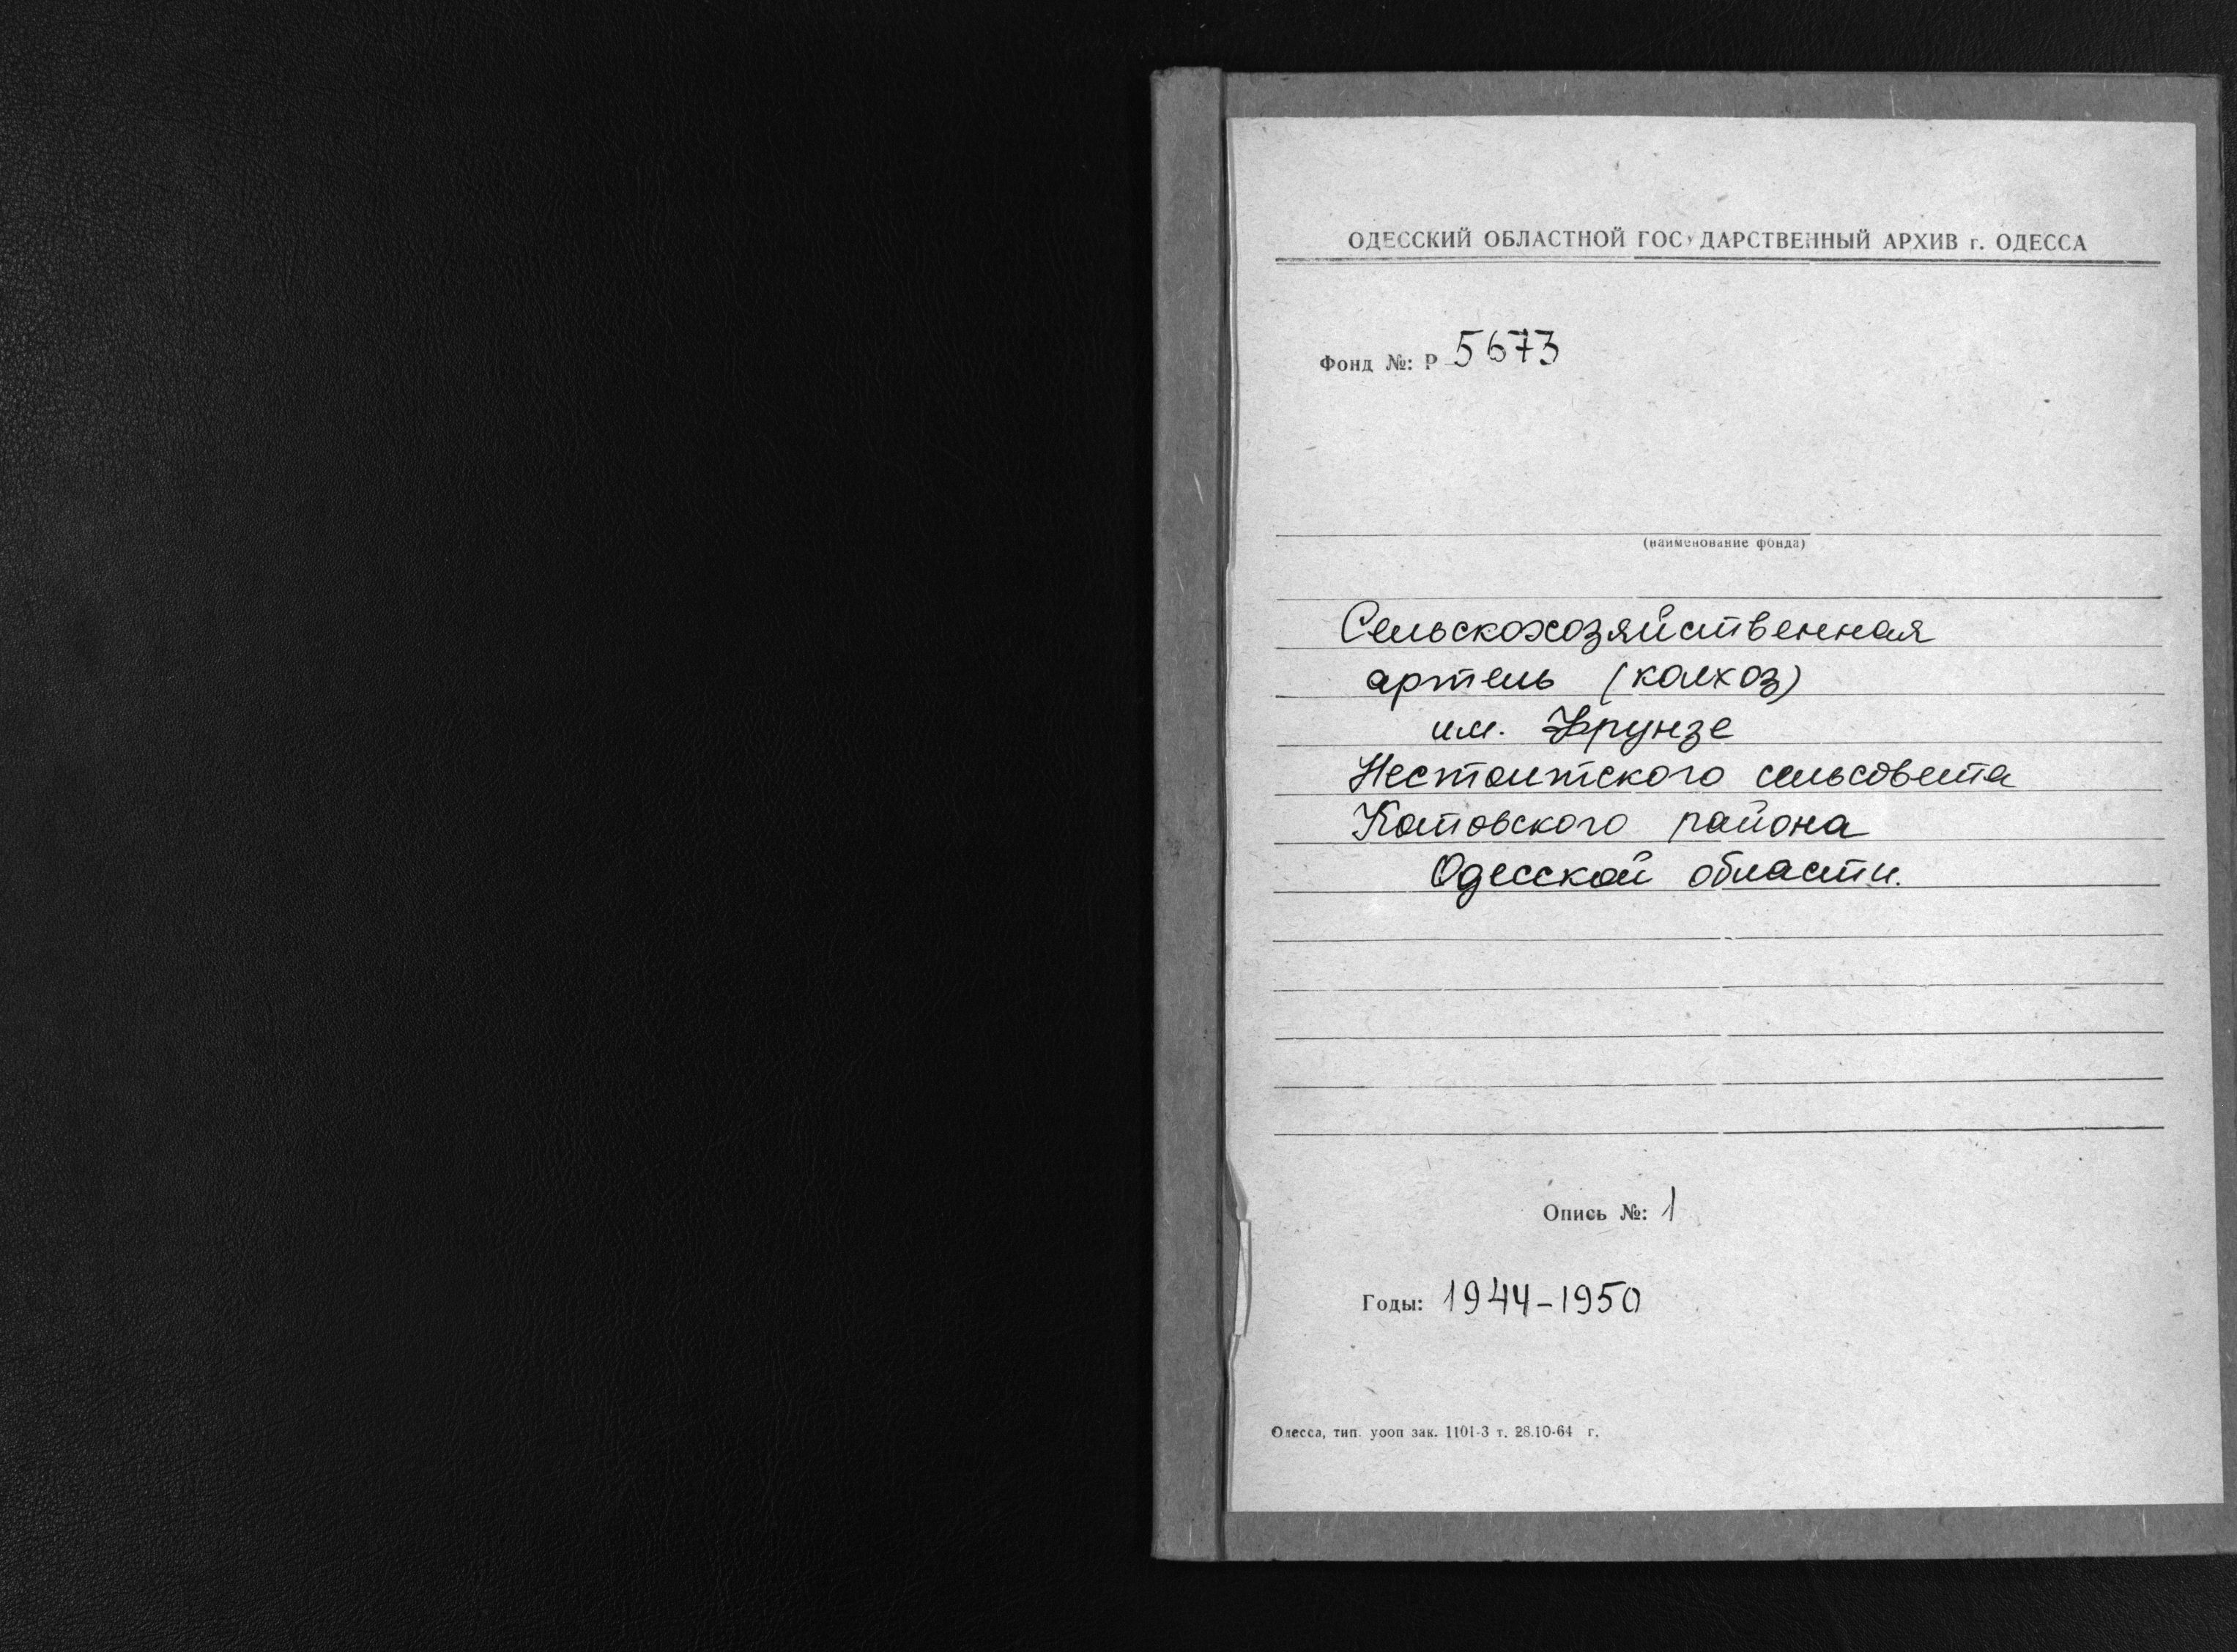 ОДЕССКИЙ ОБЛАСТНОЙ ГОСУДАРСТВЕННЫЙ АРХИВ г. ОДЕССА
Фонд №: Р 5673
(наименование фонда)
Сельскохозяйственная
артель (колхоз)
им. Фрунзе
Нестоитского сельсовета
Котовского района
Одесской области.
Опись №: 1
Годы: 1944-1950
Одесса, тип. уооп зак. 1101-3 т. 28.10-64 г.